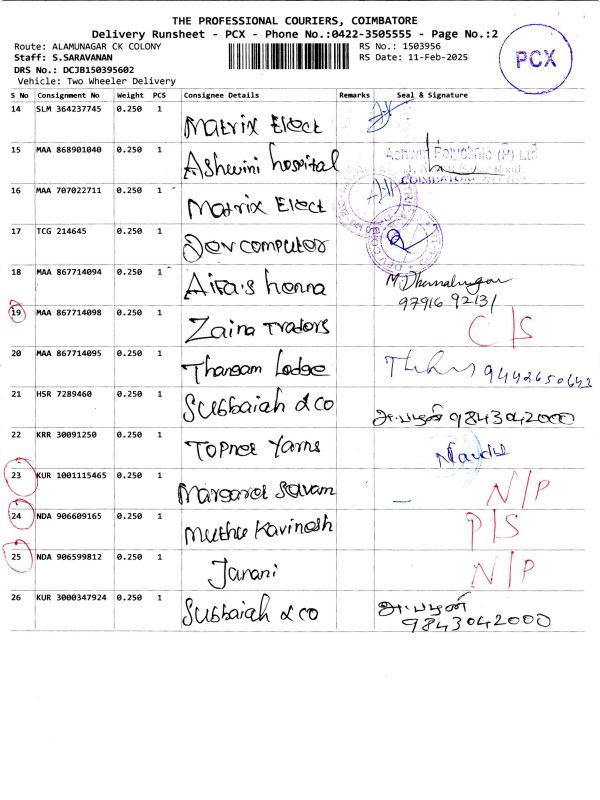 THE PROFESSIONAL COURIERS, COIMBATORE
Delivery Runsheet - PCX - Phone No.:0422-3505555 - Page No.:2
Route: ALAMUNAGAR CK COLONY RS No.: 1503956
Staff: S.SARAVANAN RS Date: 11-Feb-2025
DRS No.: DCJB150395602
Vehicle: Two Wheeler Delivery
PCX
S No Consignment No Weight PCS Consignee Details Remarks Seal & Signature
14 SLM 364237745 0.250 1 Matrix Elect
15 MAA 868901040 0.250 1 Ashwini hospital Ashwini Polyclinic (P) Ltd
COIMBATORE
16 MAA 707022711 0.250 1 Matrix Elect
17 TCG 214645 0.250 1 Dev computer
18 MAA 867714094 0.250 1 Aira's henna
97916 92131
19 MAA 867714098 0.250 1 Zaina Traders C/S
20 MAA 867714095 0.250 1 Thangam Lodge 9442650643
21 HSR 7289460 0.250 1 Subbaiah & co 9843042000
22 KRR 30091250 0.250 1 Topnoe Yarns
23 KUR 1001115465 0.250 1 Margaret Selvam N/P
24 NDA 906609165 0.250 1 Muthu Kavinesh P/S
25 NDA 906599812 0.250 1 Janani N/P
26 KUR 3000347924 0.250 1 Subbaiah & co
9843042000